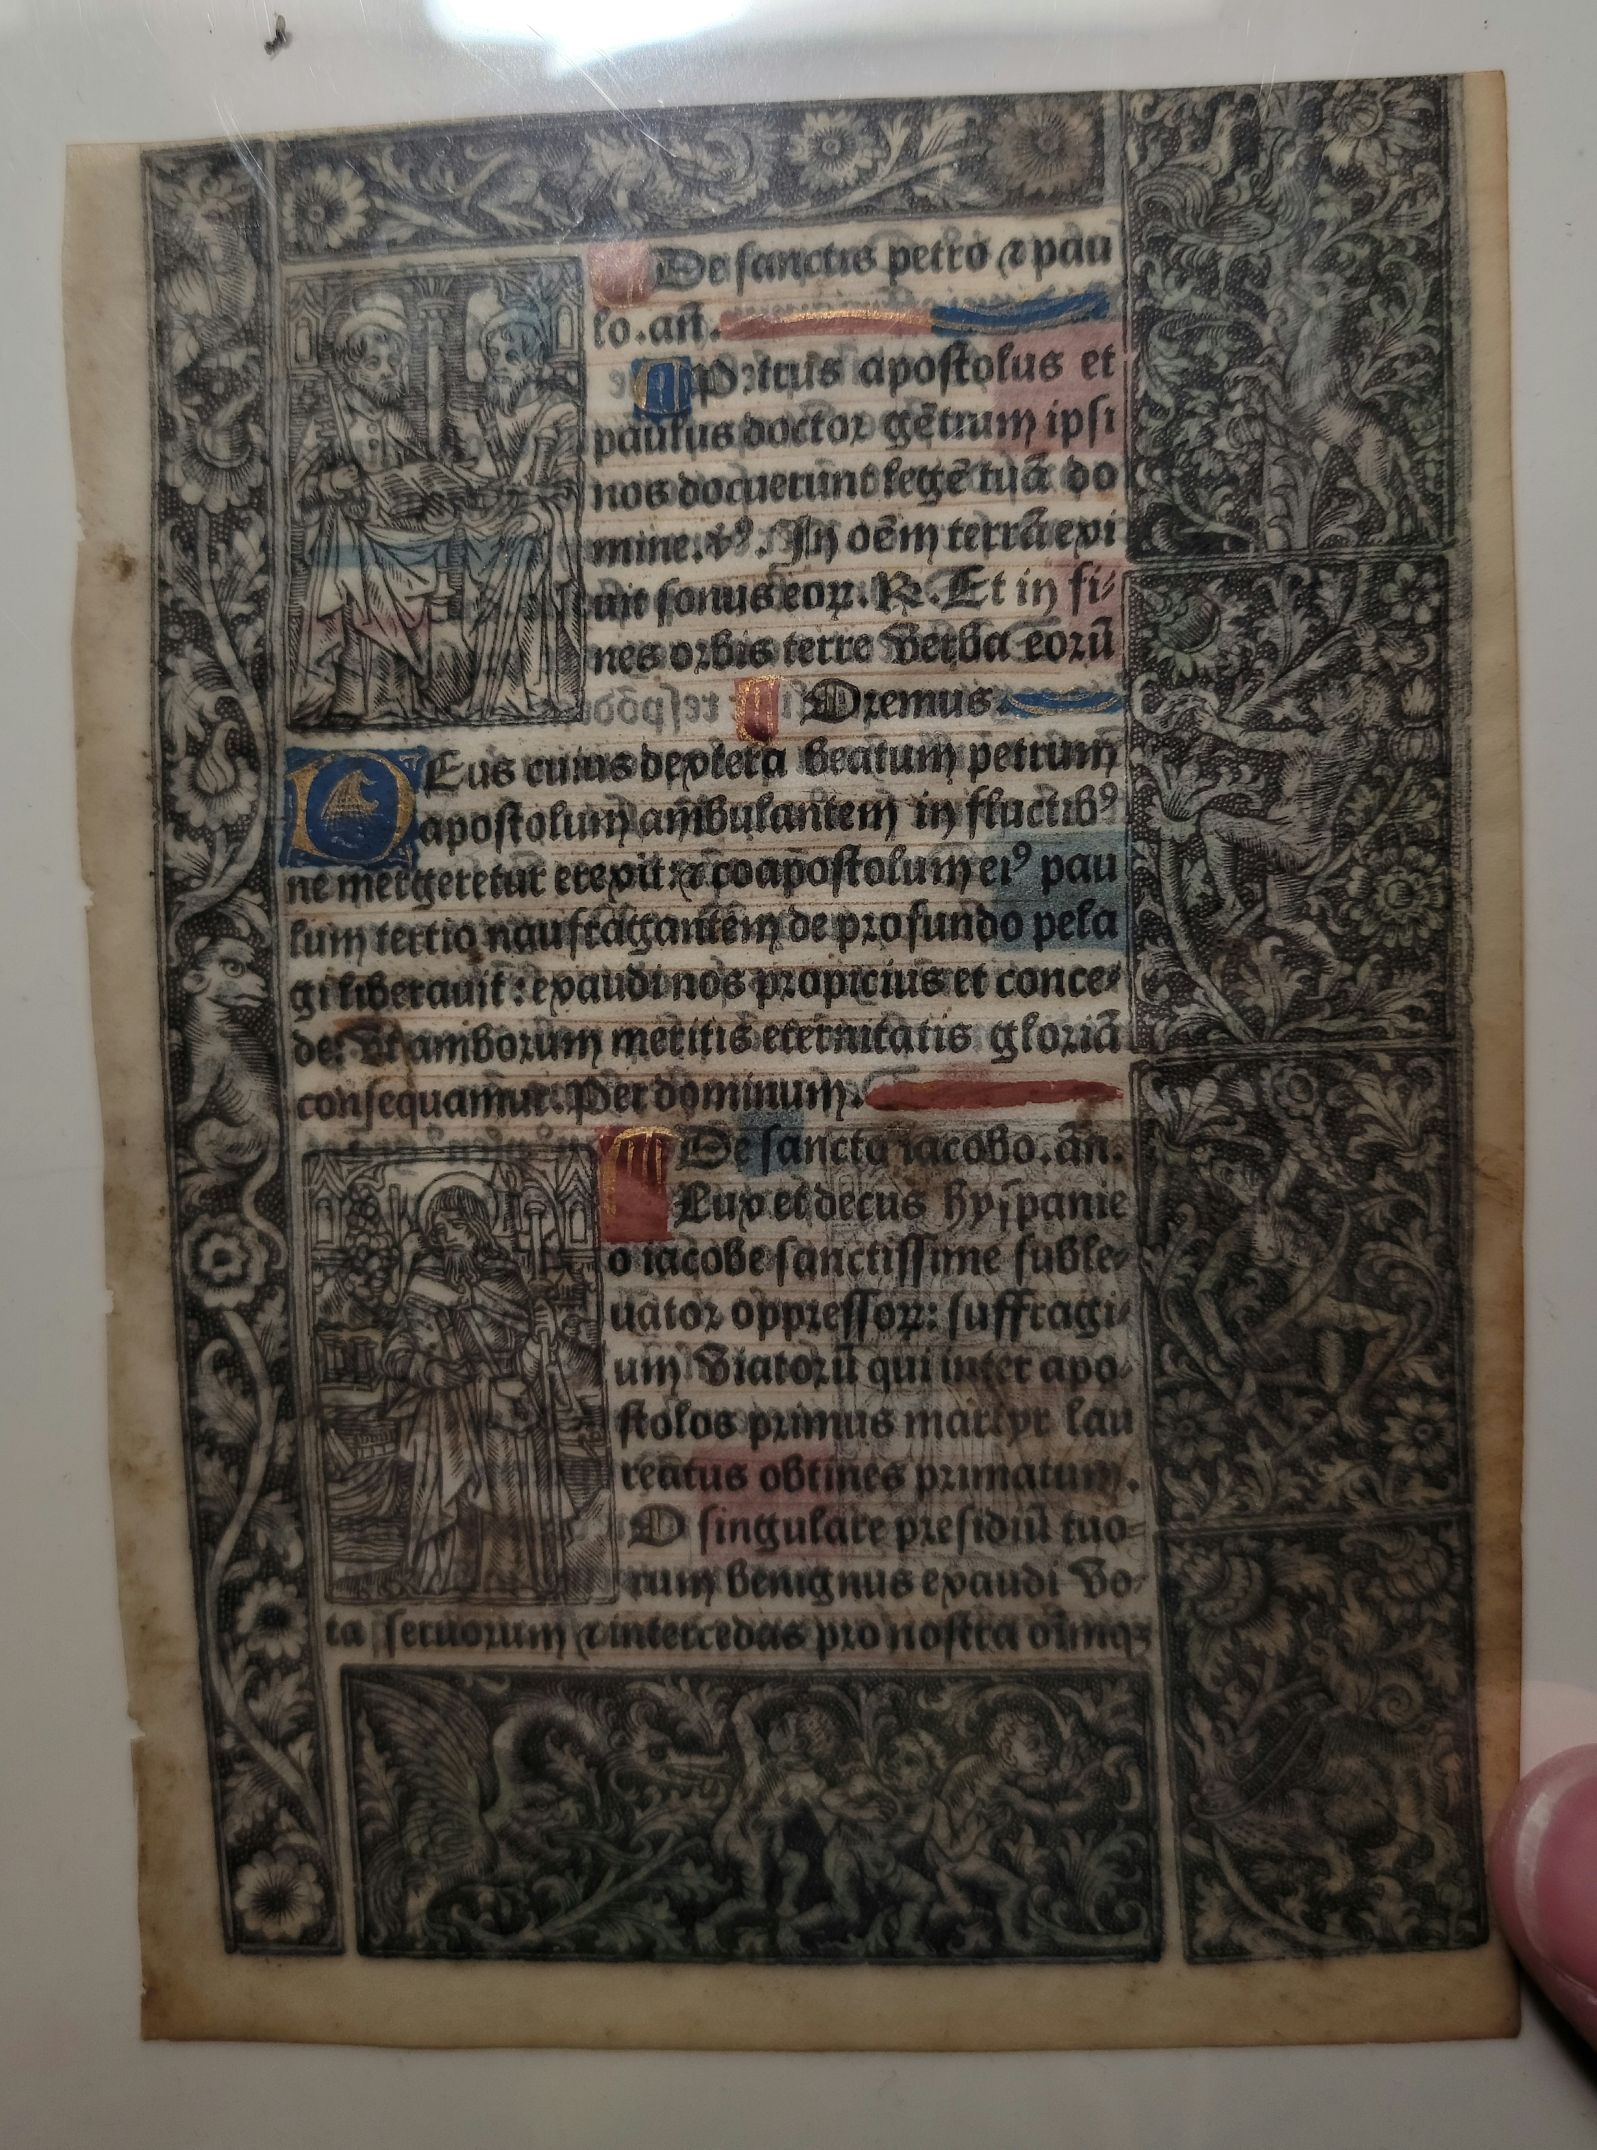 De sanctis petro ⁊ pau
lo. an̄.
Petrus apostolus et
paulus doctor gētium ipsi
nos docuerunt legē tuā do
mine. v̾. In oēm terrā exi
uit sonus eoꝝ. ℟. Et in fi-
nes orbis terre verba eorū
Oremus.
DEus cuius dextera beatum petrum
apostolum ambulantem in fluctibꝰ
ne mergeretur erexit: ⁊ coapostolum eiꝰ pau
lum tertio naufragantem de profundo pela
gi liberauit: exaudi nos propicius et conce-
de: vt amborum meritis eternitatis gloriā
consequamur. Per dominum.
De sancto iacobo. an̄.
Lux et decus hyspanie
o iacobe sanctissime suble-
uator oppressoꝝ: suffragi-
um viatorū qui inter apo-
stolos primus martyr lau
reatus obtines primatum.
O singulare presidiū tuo-
rum benignus exaudi vo-
ta seruorum ⁊ intercedas pro nostra oīmqꝫ